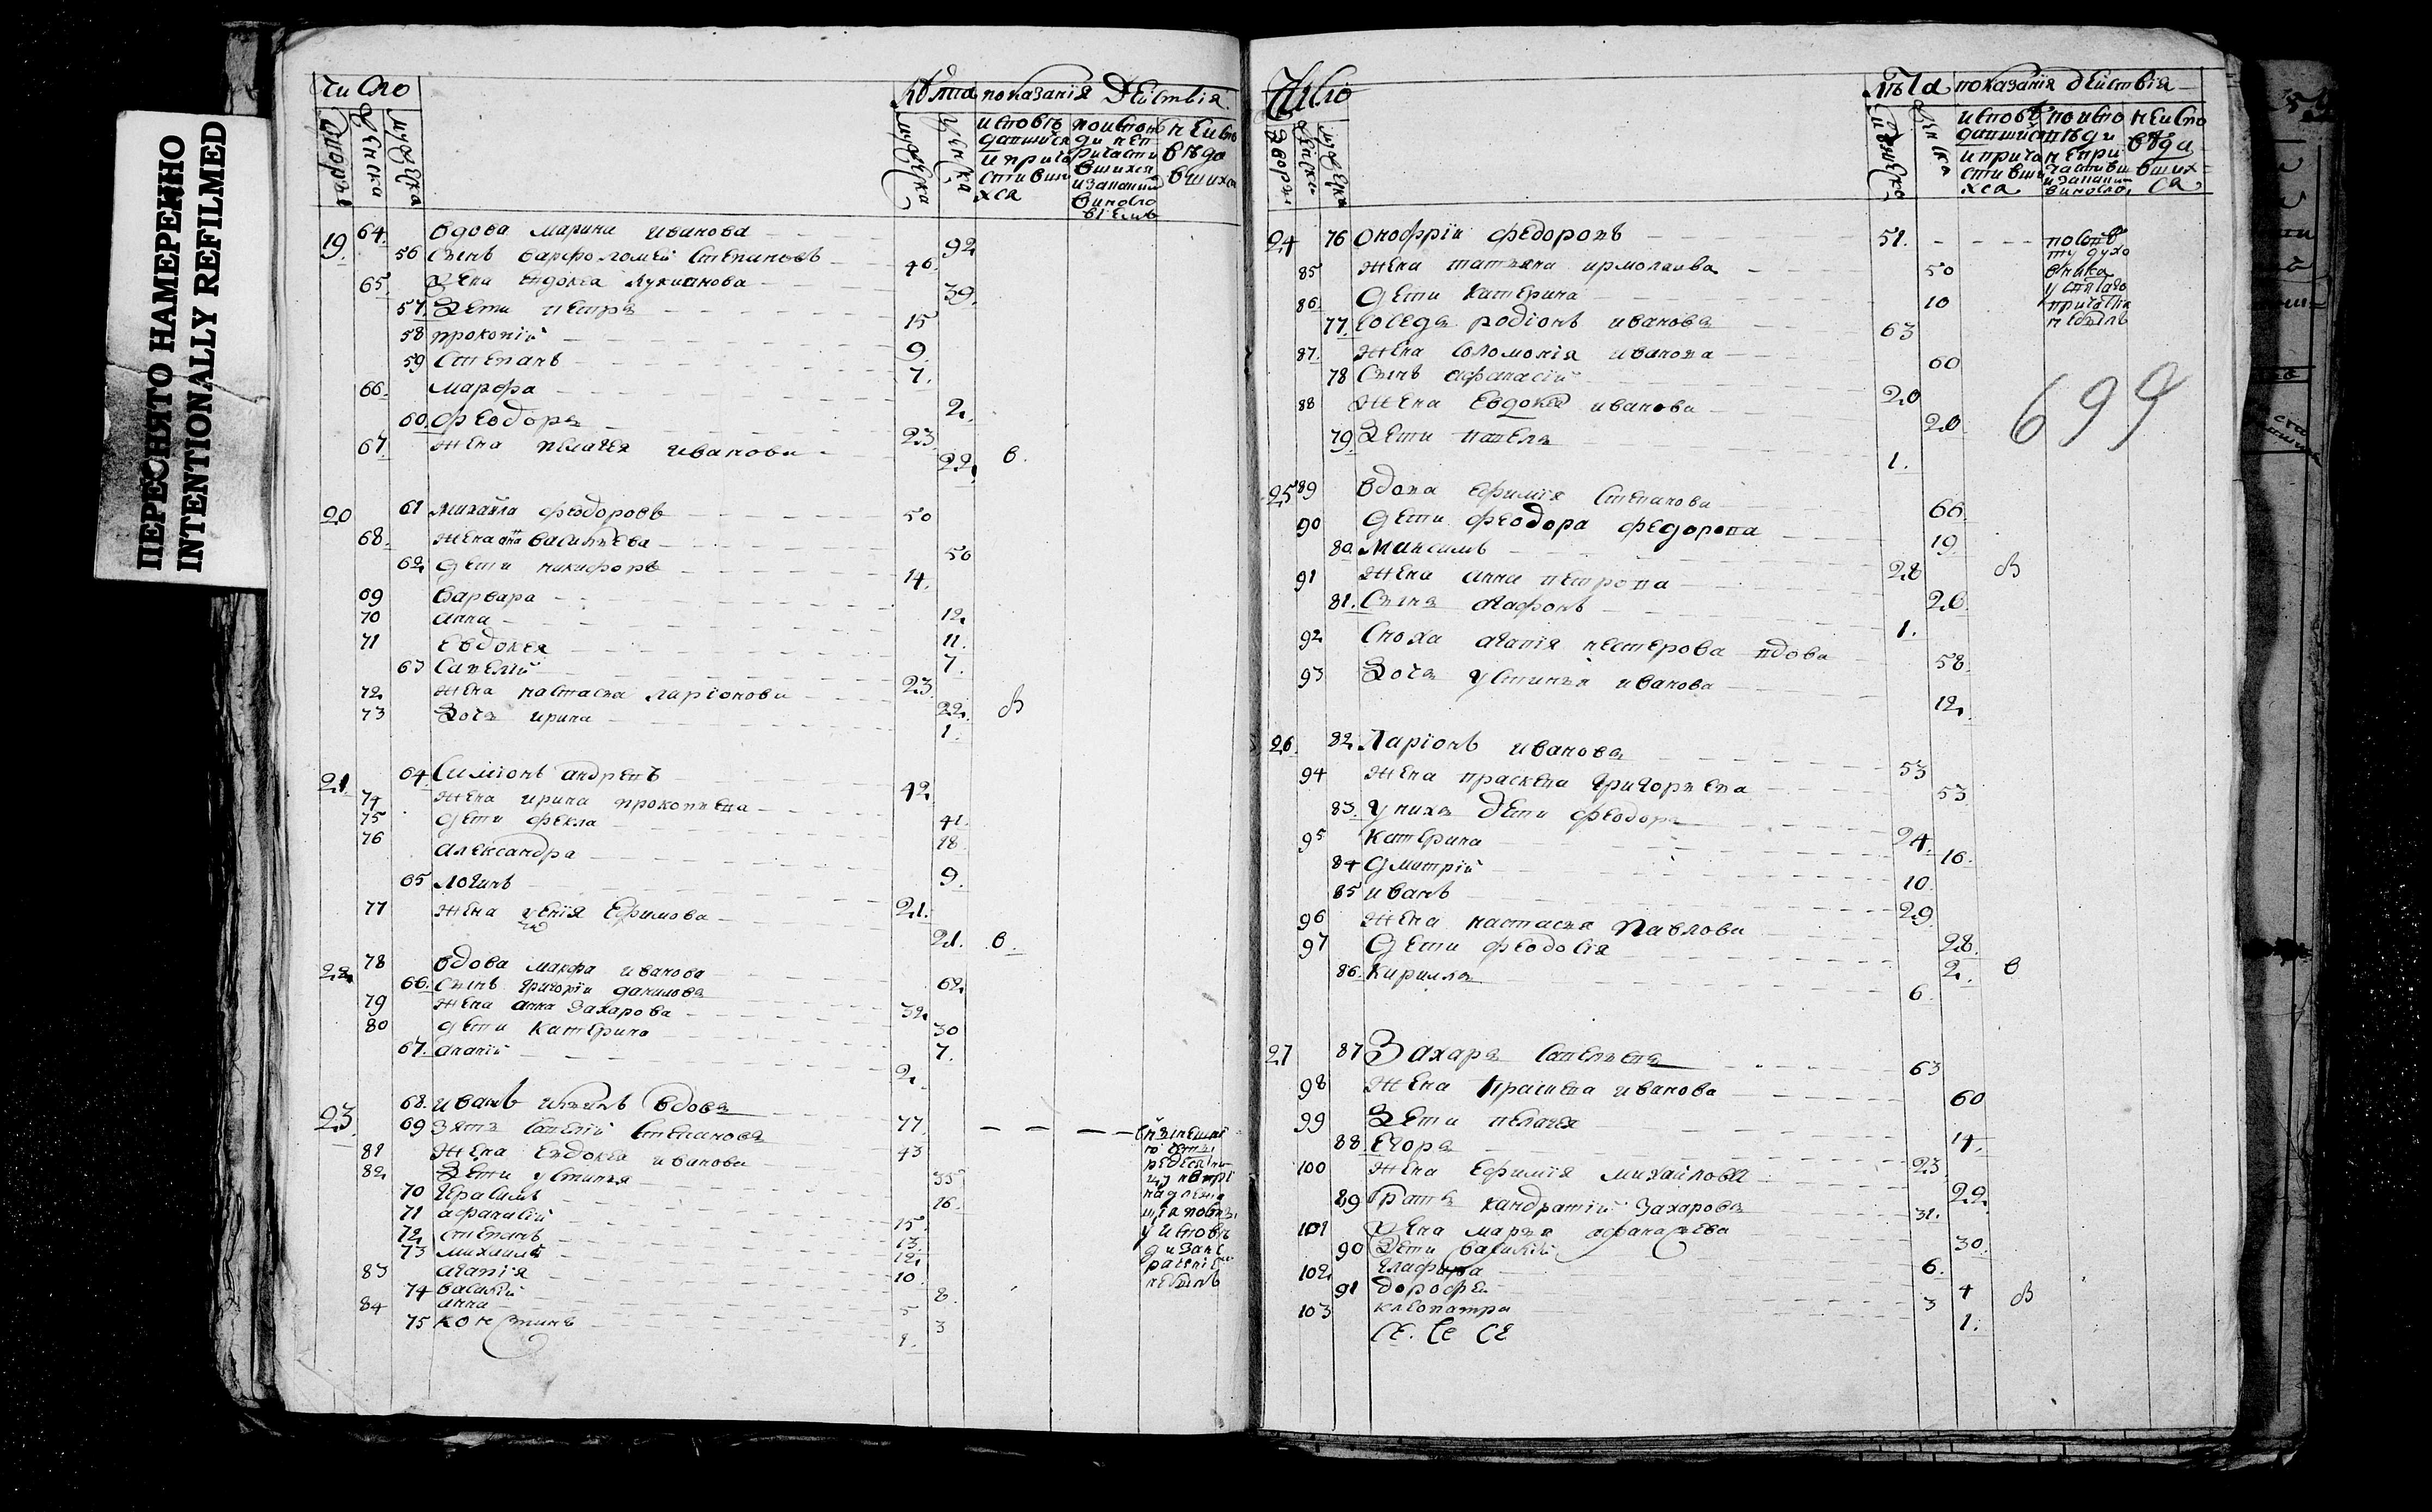 ПЕРЕСНЯТО НАМЕРЕННО
INTENTIONALLY REFILMED
Число
лѣта показанія дѣиствія
дворовъ
женска
мужеска
мужеска
женска
исповѣ
давшихся
и прича
стивши
хся
не испо
вѣда
вшихся
19. 64. вдова марина иванова 92
56 сынъ варфоломей степановъ 46.
65. жена евдокея лукианова 39.
57. дети петръ 15
58 прокопій 9.
59 степанъ 7.
66. марфа 2.
60. феодоръ 23
67. жена пелагея иванова 22. в.
20 61 михайла феодоровъ 50
68. жена анна васильева 50
62. дети никифоръ 14.
69 варвара 12
70 анна 11.
71 евдокея 7.
63 савелій 23.
72 жена настасья ларіонова 22. в
73 дочь ирина 1.
21. 64. симіонъ андревъ 42
74 жена ирина прокопьева 41.
75 дети фекла 18
76 александра 9.
65 логинъ 21.
77 жена ксенія ефимова 21. в.
22. 78 вдова марфа иванова 62
66. сынъ григоріи даниловъ 32.
79 жена анна захарова 30
80 дети катерина 7.
67. ананій 2.
23. 68. иванъ вдовъ 77.
69 зять савелій степановъ 43
81 жена евдокея иванова 35
82. дети устинья 16.
70 герасимъ 15.
71 афанасій 13.
72. степанъ 12.
73 михаилъ 10.
83 агапія 8.
74 василій 5
84 анна 3
75 1.
Число
лѣта показанія дѣиствія
дворы
женски
мужеска
женска
исповѣ
давшихся
и прича
стивши
хся
по испо
вѣди
не при
частивши
не испо
вѣда
вших=
ся
24 76 онофріи федоровъ 51. по совѣ
ту духо
вника
у святаго
причастія
небылъ
85 жена татьяна ирмолаива 50
86. дети катерина 10
77. соседъ родіонъ ивановъ 63
87. жена соломонія иванова 60
78 сынъ афанасій 20
88 жена евдокея иванова 20
79. дети павелъ 1.
699
25 89 вдова ефимія степанова 66
90 дети феодора федорова 19
80. максимъ 28
91 жена анна петрова 26. в
81. сынъ агафонъ 1.
92 сноха агапія нестерова вдова 58.
93 дочь устинья иванова 12.
26. 82. Ларіонъ ивановъ 53
94 жена прасковя григорьева 53
83. у нихъ дети феодоръ 24.
95 катерина 16.
84 дмитрій 10
85 иванъ 29
96 жена настасья Павлова 28.
97 дети феодосія 2. в
86. кирилла 6
27 87 Захаръ савельевъ 63
98 жена иванова 60
99 дети пелагея 14.
88. егоръ 23
100 жена ефимія михайлова 22.
89 братъ кандратій захаровъ 31.
101 жена марья афанасьева 30.
90 дети василій 6.
102. глафира 4
91 дорофе 3 в
103 клеопатра 1.